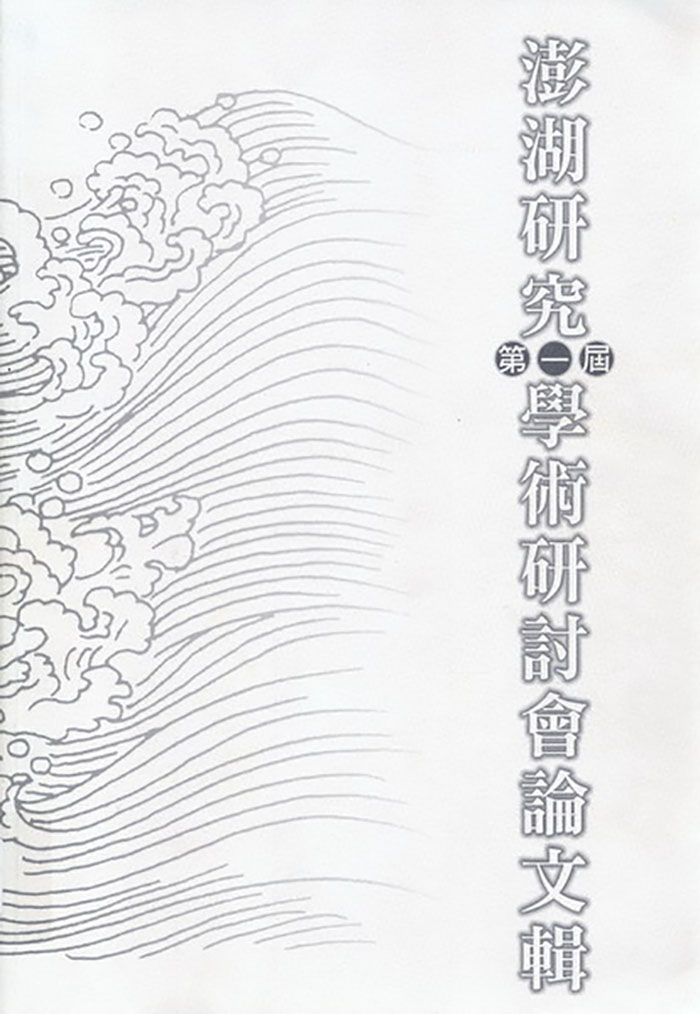 澎湖研究
第一屆
學術研討會論文輯